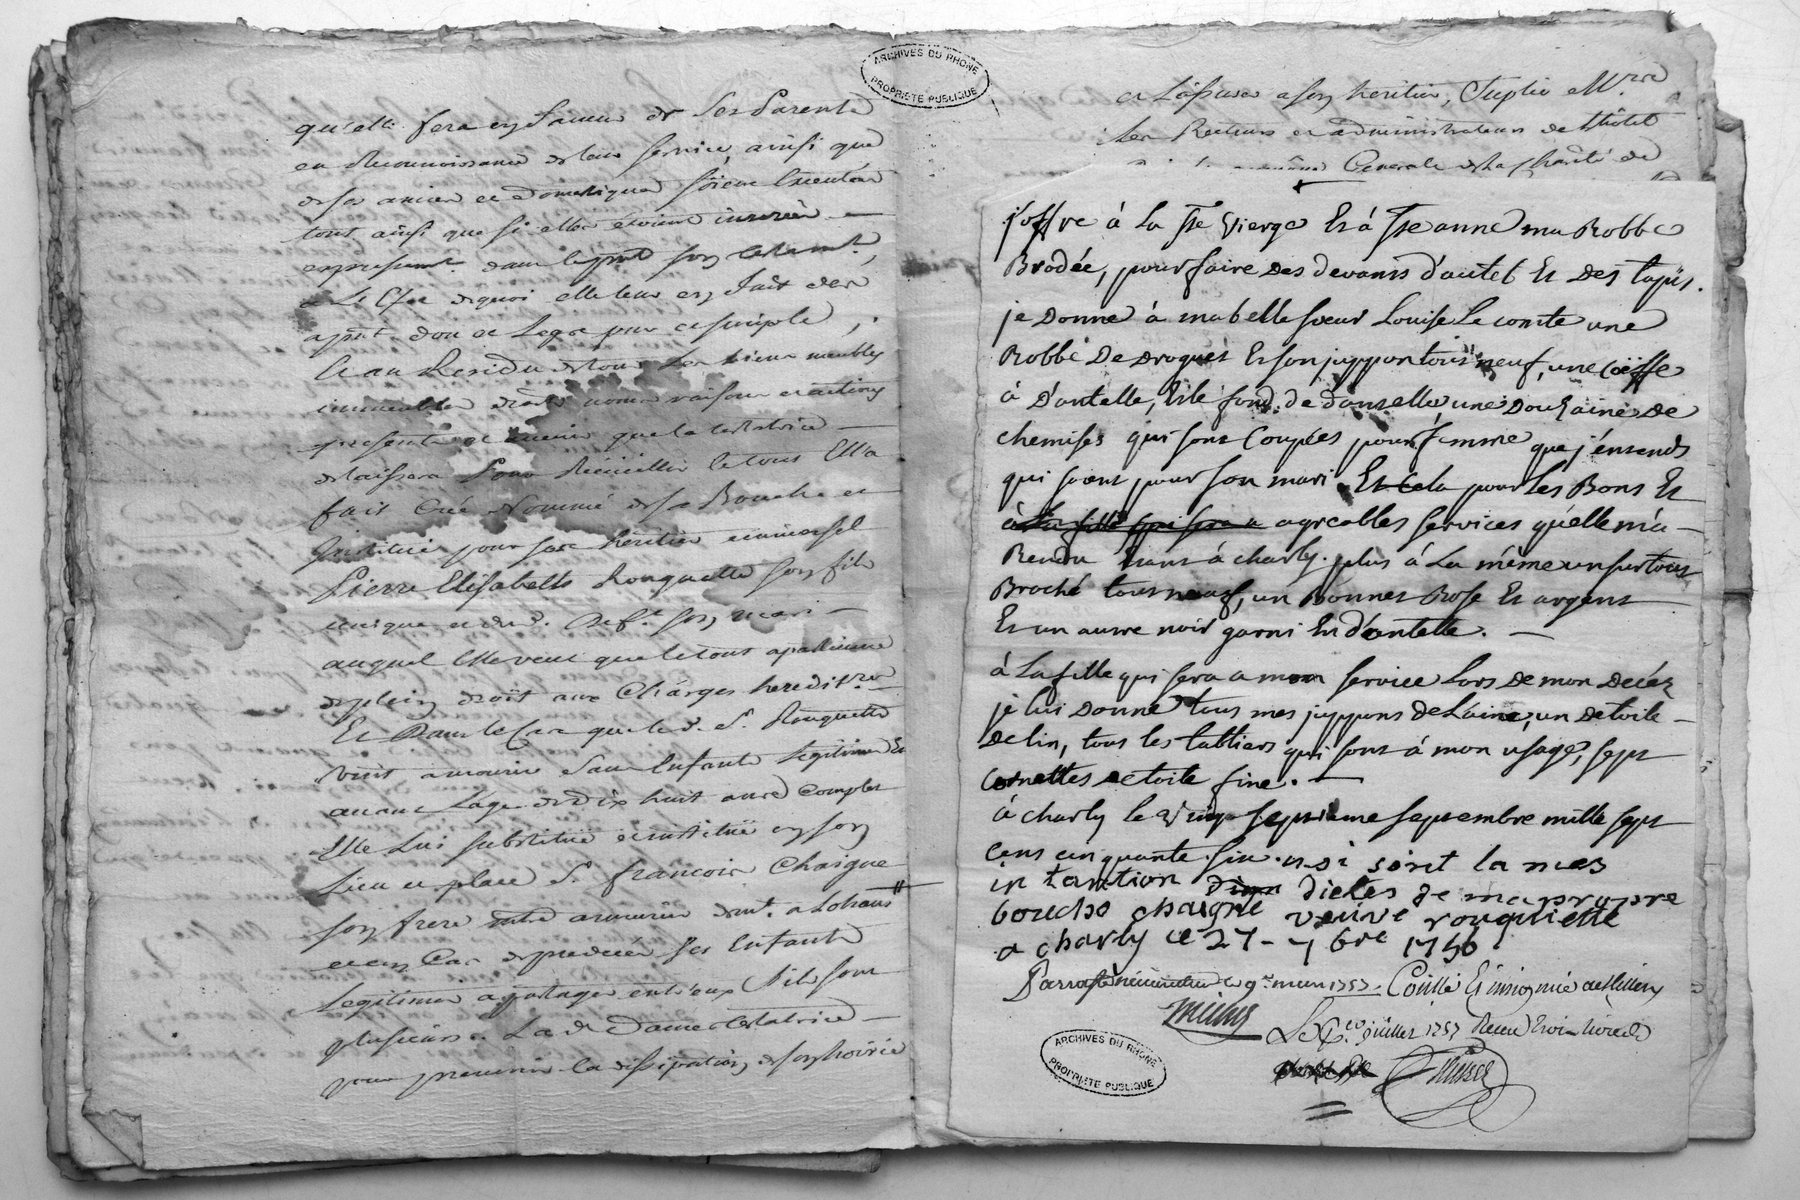 ARCHIVES DU RHONE
PROPRIETE PUBLIQUE
qu'elle fera en faveur de ses Parents
en Reconnoissance de leur service, ainsi que
de ses amies et domestiques soient Executées
tout ainsi que si elles étoient inserées
expressemt. dans le prnt son testamt.,
de quoi elle leur en fait des
aprnt. don et Legs pour ce simple,
Et au Residu de tous les biens meubles
immeubles droits noms raisons et actions
presents et avenir que la testatrice
delaissera Pour Recüeillir le tout Ella
fait Créé Nommé de sa Bouche et
Institué pour son heritier universel
Pierre Elisabeth Rouquette son fils
unique et dud. Def.t son mari
auquel Elle veut que le tout apartienne
de plein droit aux Charges heredit.res
Et Dans le Cas que led. Sr. Rouquette
vint a mourir sans Enfants legitimes Et
avant L'age de dix huit ans Complet
Elle Lui substitüe et institüe en son
Lieu et place Sr. francois Chaigne
son frere
et en Cas de predecés ses Enfants
legitimes a partager entr'eux s'ils sont
plusieurs. La de. Dame testatrice
pour prevenir la dissipation de son hoirie
et L'assurer a son heritier, Suplie Mrs
Les Recteurs et administrateurs de L'hôtel
Generale de la Charité de
j'offre à la Ste Vierge Et à Ste anne ma Robbe
Brodée, pour faire des devants d'autel Et des tapis.
je Donne à ma belle soeur Louise Le comte une
Robbe De Droguet Et son juppon tout neuf, une Coëffe
à D'antelle, Et le fond de dantelle, une Douzaine De
chemises qui sont Coupées pour femme que j'entends
qui soient pour son mari Et Cela pour les Bons Et
à La fille qui sera a agreables services qu'elle m'a
Rendu Etant à charly. plus à La même un surtout
Broché tout neuf, un Bonnet Rose Et argent
Et un autre noir garni En d'antelle.
à La fille qui sera a mon service Lors De mon Decez
je lui Donne tous mes juppons de Laine, un De toile
De lin, tous les tabliers qui sont à mon usage, sept
Cornettes de toile fine.
à charly le vingt septieme septembre mille sept
Cens cinquante six. si soit la mes
in tantion dictés de ma propre
bouche chaigne veuve rouquette
a charly ce 27 - 7 bre 1756
1757. Controllé Et insinué
juillet 1757
ARCHIVES DU RHONE
PROPRIETE PUBLIQUE